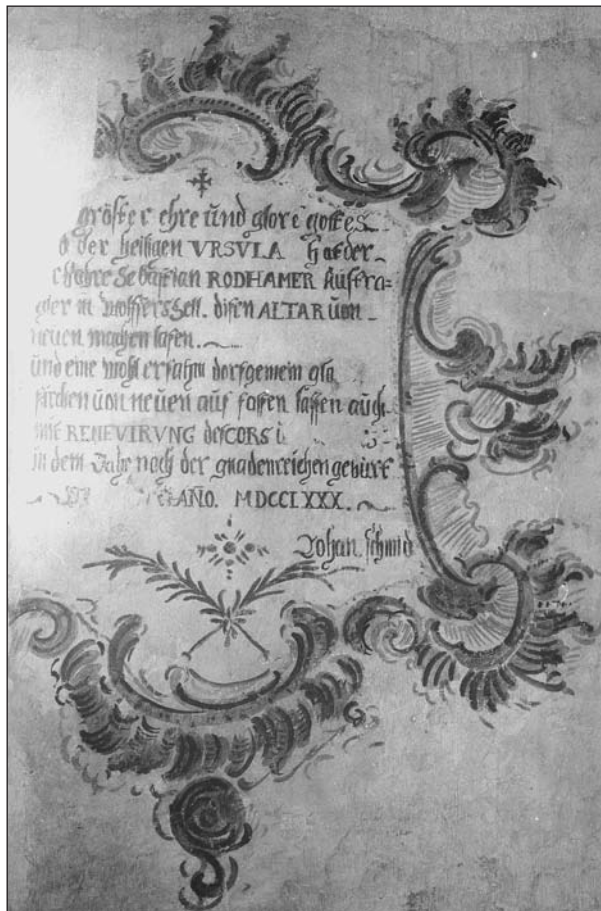 größter ehre ŭnd glore gottes
der heiligen VRSVLA hat der
Sebastian RODHAMER Aŭstra=
gler in Wolfferszell. disen ALTAR ŭon
neŭen machen lasen.
ŭnd eine wohl erfahrn dorfgemein
ŭon neŭen aŭf fassen lassen aŭch
RENEVIRVNG des CORS
in dem Jahr nach der gnadenreichen gebŭrt
AÑO. MDCCLXXX.
Johan schmid